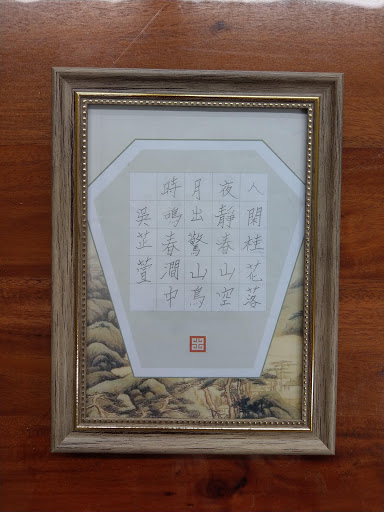 人閑桂花落
夜靜春山空
月出驚山鳥
時鳴春澗中
吳芷萱